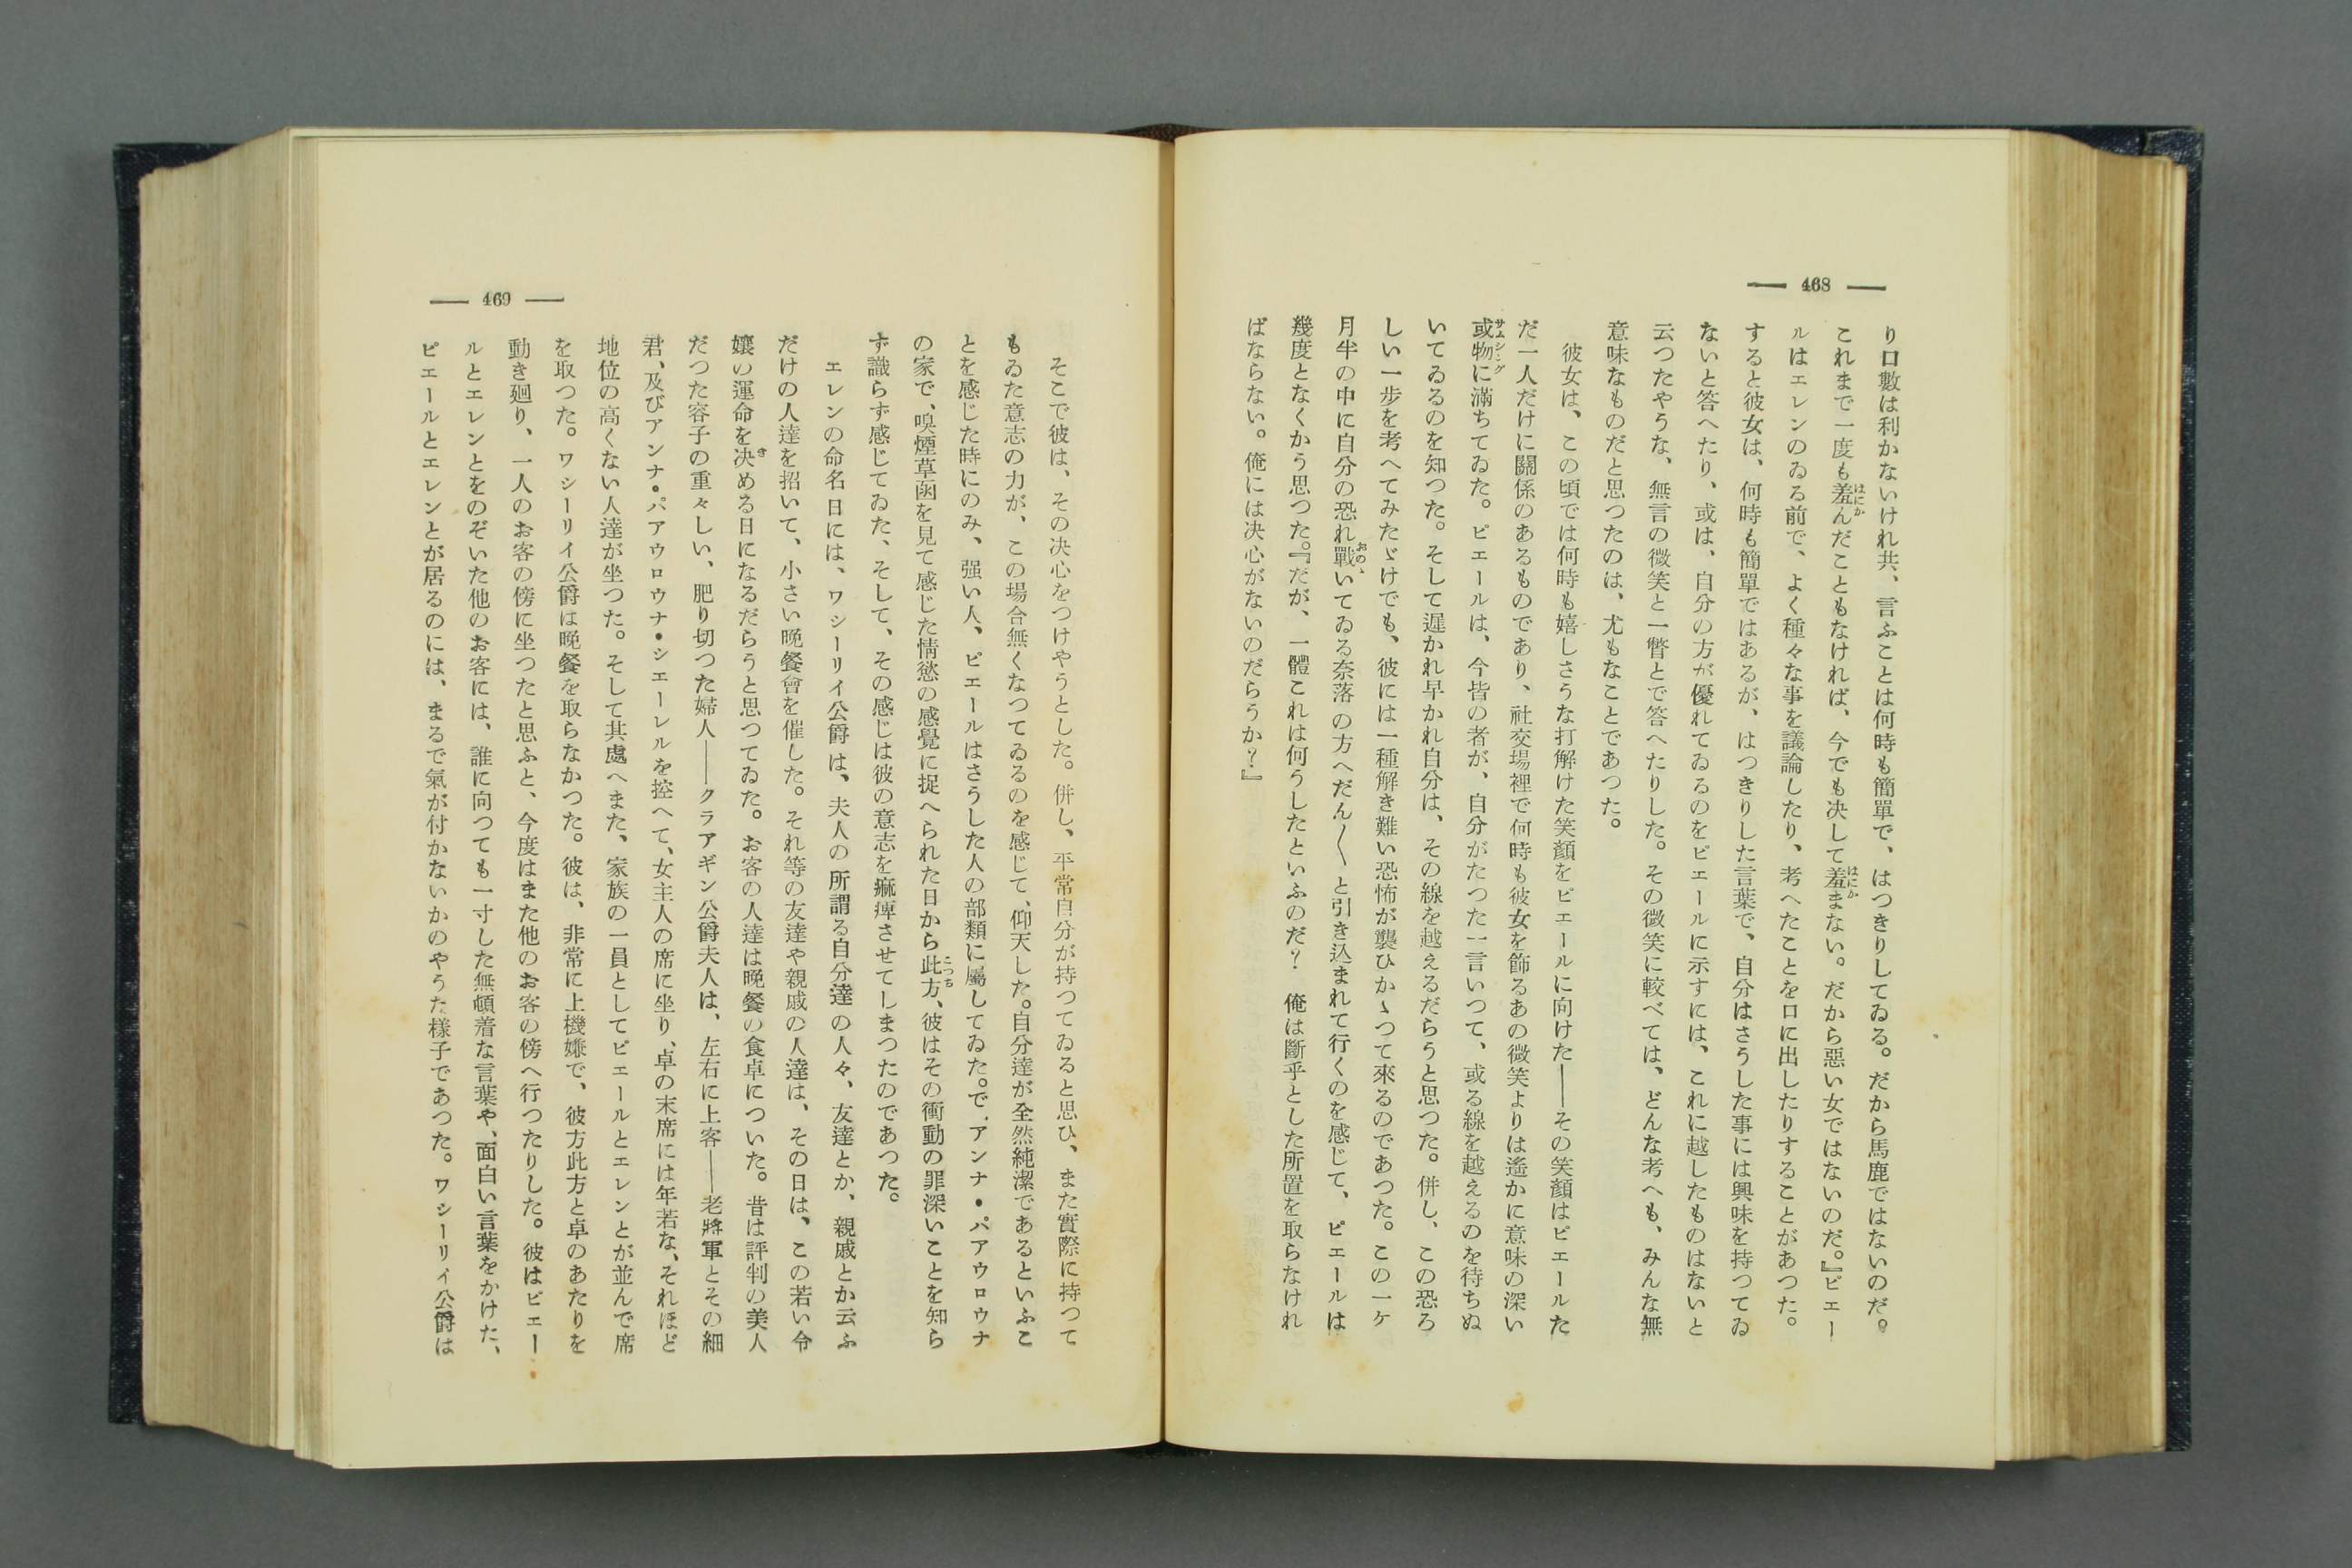 — 468 —
り口數は利かないけれ共、言ふことは何時も簡單で、はつきりしてゐる。だから馬鹿ではないのだ。
これまで一度も羞んだこともなければ、今でも決して羞まない。だから惡い女ではないのだ。』ピエー
ルはエレンのゐる前で、よく種々な事を議論したり、考へたことを口に出したりすることがあつた。
すると彼女は、何時も簡單ではあるが、はつきりした言葉で、自分はさうした事には興味を持つてゐ
ないと答へたり、或は、自分の方が優れてゐるのをピエールに示すには、これに越したものはないと
云つたやうな、無言の微笑と一瞥とで答へたりした。その微笑に較べては、どんな考へも、みんな無
意味なものだと思つたのは、尤もなことであつた。
彼女は、この頃では何時も嬉しさうな打解けた笑顏をピエールに向けた——その笑顏はピエールた
だ一人だけに關係のあるものであり、社交場裡で何時も彼女を飾るあの微笑よりは遙かに意味の深い
或物に滿ちてゐた。ピエールは、今皆の者が、自分がたつた一言いつて、或る線を越えるのを待ちぬ
いてゐるのを知つた。そして遲かれ早かれ自分は、その線を越えるだらうと思つた。併し、この恐ろ
しい一步を考へてみたゞけでも、彼には一種解き難い恐怖が襲ひかゝつて來るのであつた。この一ケ
月半の中に自分の恐れ戰いてゐる奈落の方へだん〳〵と引き込まれて行くのを感じて、ピエールは
幾度となくかう思つた。『だが、一體これは何うしたといふのだ？　俺は斷乎とした所置を取らなけれ
ばならない。俺には決心がないのだらうか？』
— 469 —
そこで彼は、その決心をつけやうとした。併し、平常自分が持つてゐると思ひ、また實際に持つて
もゐた意志の力が、この場合無くなつてゐるのを感じて、仰天した。自分達が全然純潔であるといふこ
とを感じた時にのみ、强い人、ピエールはさうした人の部類に屬してゐた。で、アンナ・パアウロウナ
の家で、嗅煙草函を見て感じた情慾の感覺に捉へられた日から此方、彼はその衝動の罪深いことを知ら
ず識らず感じてゐた、そして、その感じは彼の意志を痲痺させてしまつたのであつた。
エレンの命名日には、ワシーリイ公爵は、夫人の所謂る自分達の人々、友達とか、親戚とか云ふ
だけの人達を招いて、小さい晩餐會を催した。それ等の友達や親戚の人達は、その日は、この若い令
孃の運命を決める日になるだらうと思つてゐた。お客の人達は晩餐の食卓についた。昔は評判の美人
だつた容子の重々しい、肥り切つた婦人——クラアギン公爵夫人は、左右に上客——老將軍とその細
君、及びアンナ・パアウロウナ・シエーレルを控へて、女主人の席に坐り、卓の末席には年若な、それほど
地位の高くない人達が坐つた。そして其處へまた、家族の一員としてピエールとエレンとが並んで席
を取つた。ワシーリイ公爵は晩餐を取らなかつた。彼は、非常に上機嫌で、彼方此方と卓のあたりを
動き廻り、一人のお客の傍に坐つたと思ふと、今度はまた他のお客の傍へ行つたりした。彼はピエー
ルとエレンとをのぞいた他のお客には、誰に向つても一寸した無頓着な言葉や、面白い言葉をかけた、
ピエールとエレンとが居るのには、まるで氣が付かないかのやうた樣子であつた。ワシーリイ公爵は